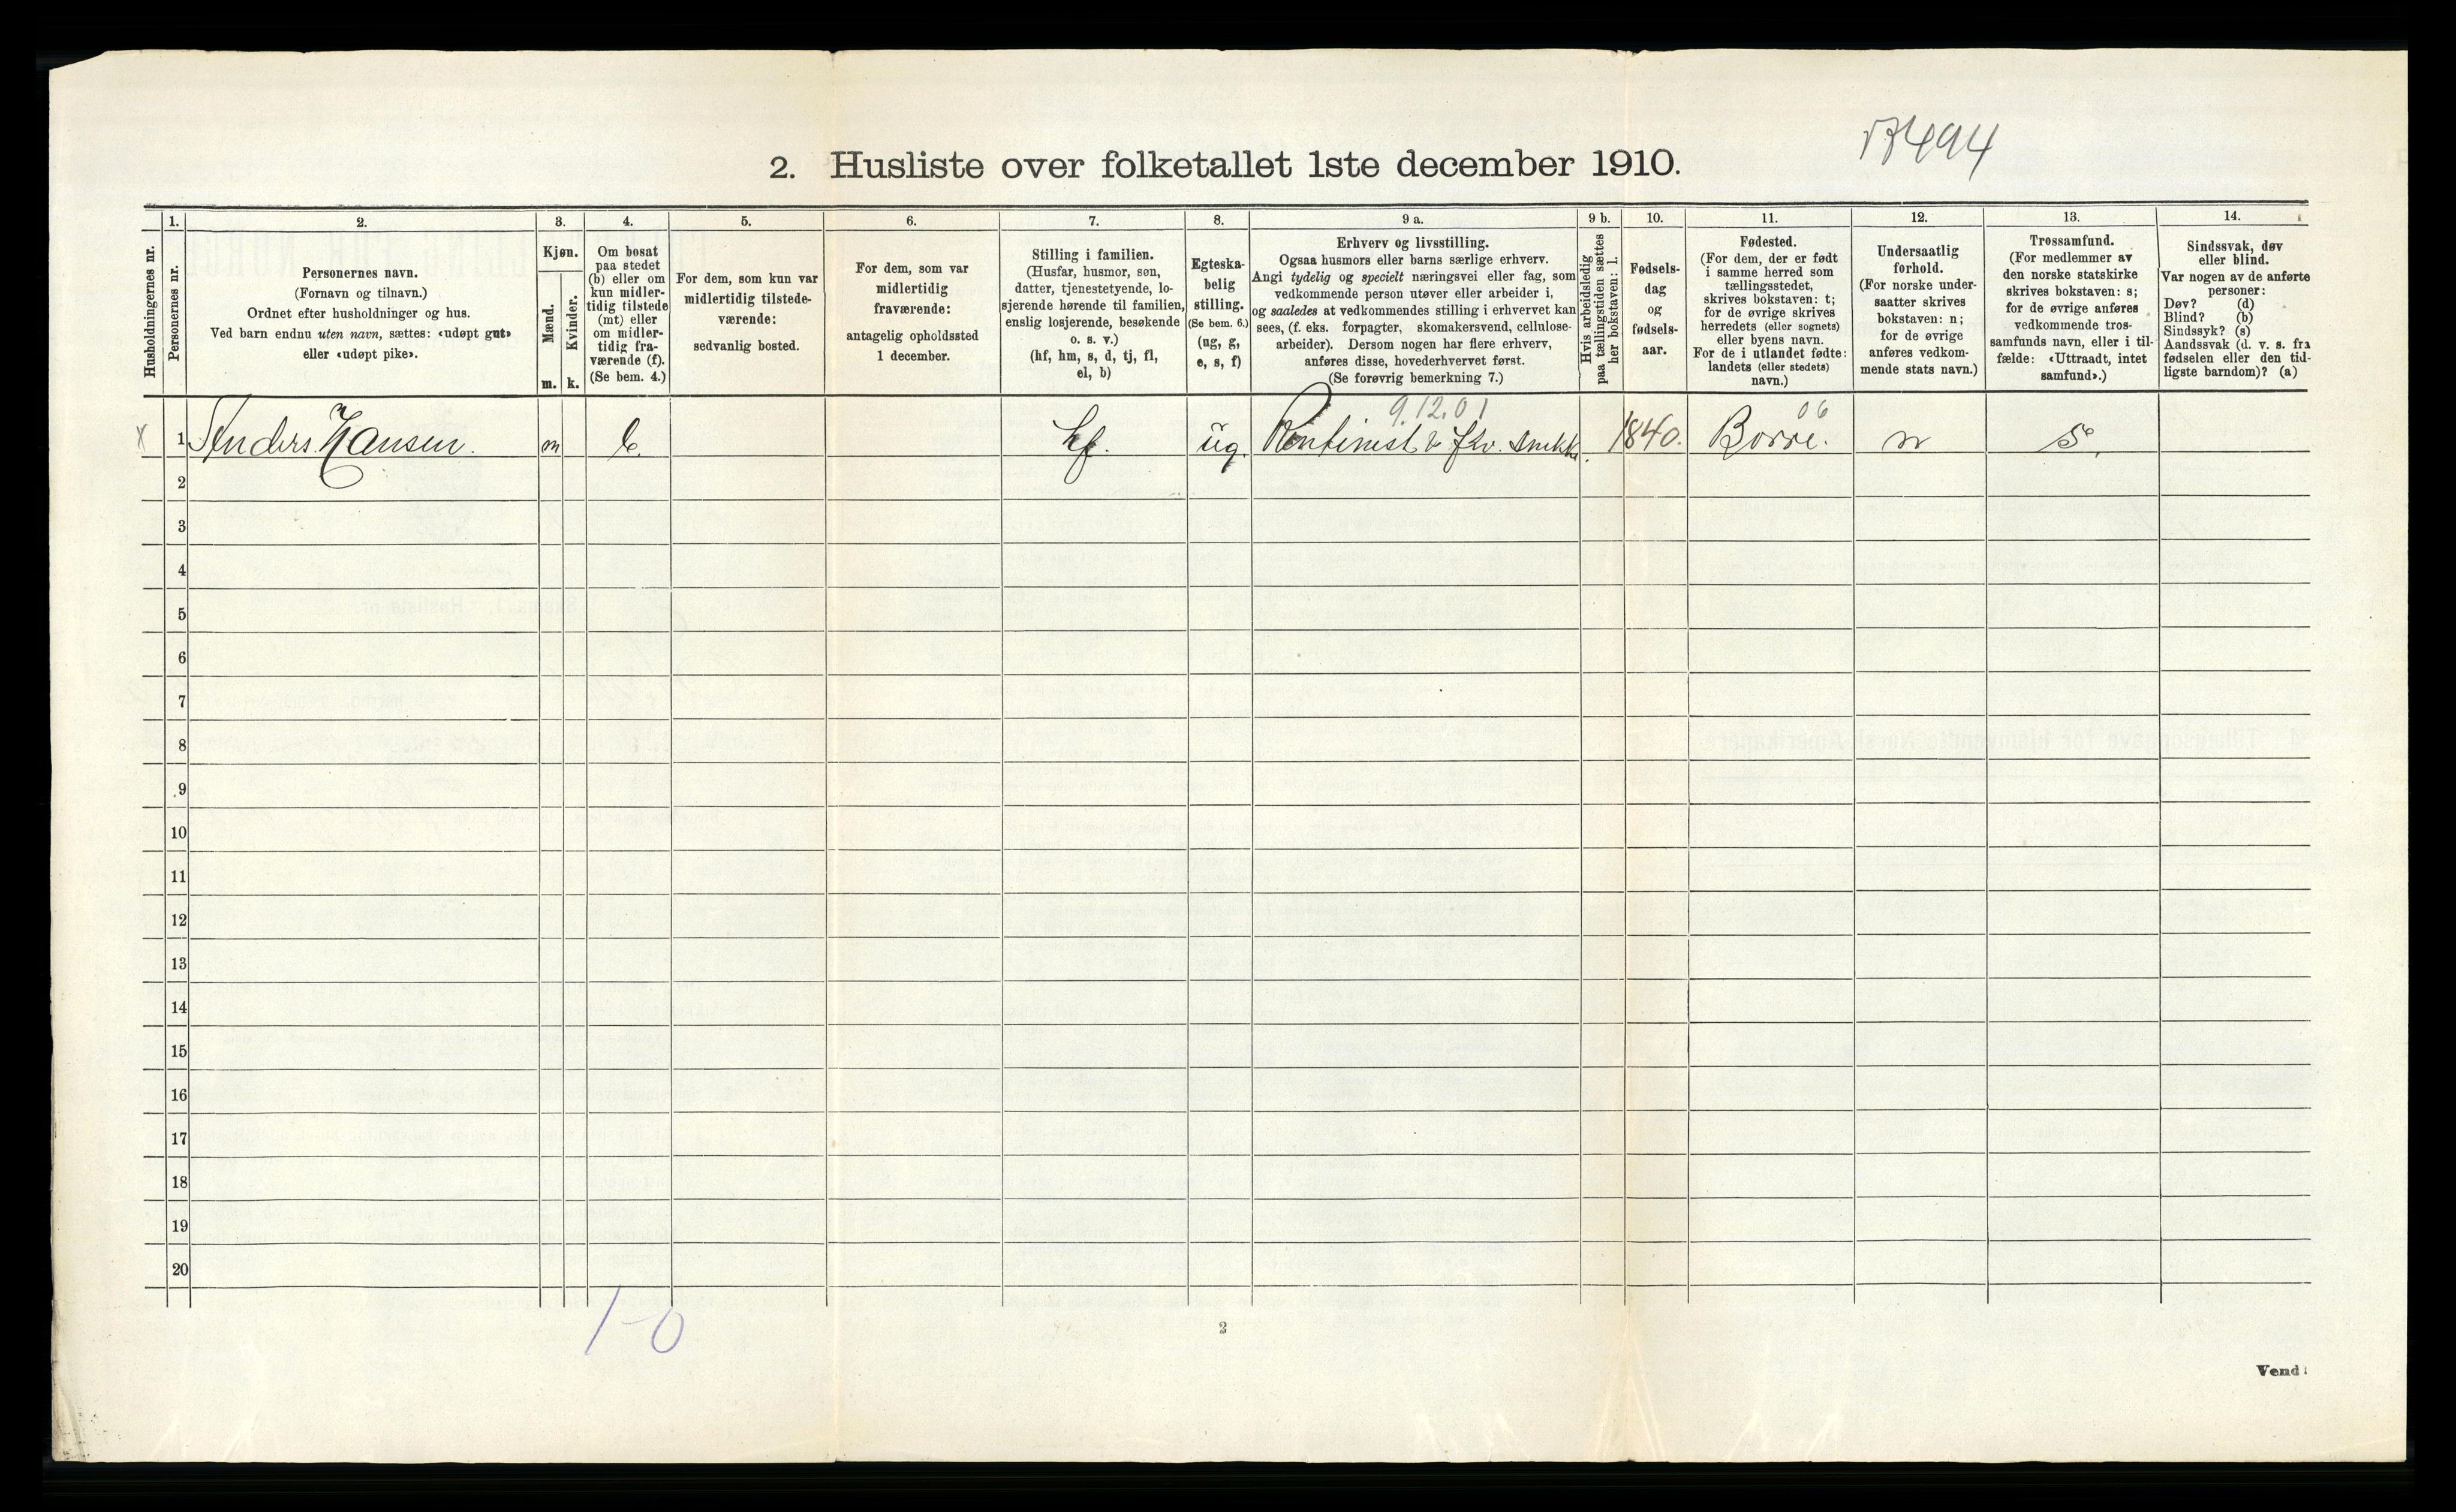 17494
2. Husliste over folketallet 1ste december 1910.
Husholdningernes nr.
1.
Personernes nr.
2.
Personernes navn.
(Fornavn og tilnavn.)
Ordnet efter husholdninger og hus.
Ved barn endnu uten navn, sættes: «udøpt gut»
eller «udøpt pike».
3.
Kjøn.
Mænd.
m.
Kvinder.
k.
4.
Om bosat
paa stedet
(b) eller om
kun midler-
tidig tilstede
(mt) eller
om midler-
tidig fra-
værende (f).
(Se bem. 4.)
5.
For dem, som kun var
midlertidig tilstede-
værende:
sedvanlig bosted.
6.
For dem, som var
midlertidig
fraværende:
antagelig opholdssted
1 december.
7.
Stilling i familien.
(Husfar, husmor, søn,
datter, tjenestetyende, lo-
sjerende hørende til familien,
enslig losjerende, besøkende
o. s. v.)
(hf, hm, s, d, tj, fl,
el, b)
8.
Egteska-
belig
stilling.
(Se bem. 6.)
(ug, g,
e, s, f)
9 a.
Erhverv og livsstilling.
Ogsaa husmors eller barns særlige erhverv.
Angi tydelig og specielt næringsvei eller fag, som
vedkommende person utøver eller arbeider i,
og saaledes at vedkommendes stilling i erhvervet kan
sees, (f. eks. forpagter, skomakersvend, cellulose-
arbeider). Dersom nogen har flere erhverv,
anføres disse, hovederhvervet først.
(Se forøvrig bemerkning 7.)
9 b.
Hvis arbeidsledig
paa tællingstiden sættes
her bokstaven: l.
10.
Fødsels-
dag
og
fødsels-
aar.
11.
Fødested.
(For dem, der er født
i samme herred som
tællingsstedet,
skrives bokstaven: t;
for de øvrige skrives
herredets (eller sognets)
eller byens navn.
For de i utlandet fødte:
landets (eller stedets)
navn.)
12.
Undersaatlig
forhold.
(For norske under-
saatter skrives
bokstaven: n;
for de øvrige
anføres vedkom-
mende stats navn.)
13.
Trossamfund.
(For medlemmer av
den norske statskirke
skrives bokstaven: s;
for de øvrige anføres
vedkommende tros-
samfunds navn, eller i til-
fælde: «Uttraadt, intet
samfund».)
14.
Sindssvak, døv
eller blind.
Var nogen av de anførte
personer:
Døv? (d)
Blind? (b)
Sindssyk? (s)
Aandssvak (d. v. s. fra
fødselen eller den tid-
ligste barndom)? (a)
9.12.01 06
x 1 Anders Hansen. m b. hf. ug. Rentenist & fhv. snekk. 1840. Borre. n s.
2
3
4
5
6
7
8
9
10
11
12
13
14
15
16
17
18
19
20
1-0
2
Vend!